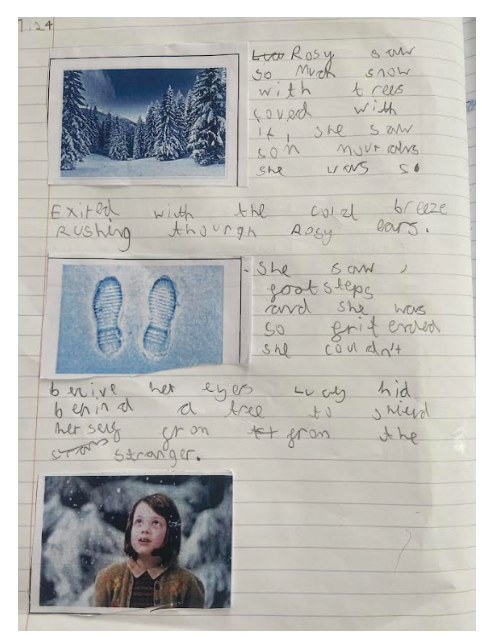 1.24
Rosy saw
so much snow
with trees
coved with
it, she saw
son mountains
she was so
Exited with the cold breeze
Rushing thourgh Rosy ears.
She saw
footsteps
and she was
so fritended
she couldn't
benive her eyes Lucy hid
behind a tree to shield
herself from from the
stranger.